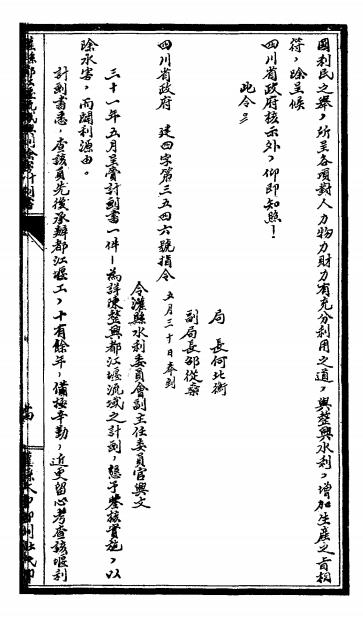 國利民之舉，所呈各項對人力物力財力有充分利用之道，與整興水利，增加生產之旨相
符，除呈候
四川省政府核示外，仰即知照！
此令
局長何北衡
副局長邵從燊
五月三十日奉到
四川省政府 建四字第三五四六號指令
令灌縣水利委員會副主任委員官興文
三十一年五月呈賫計劃書一件—為詳陳整興都江堰流域之計劃，懇予鑒核實施，以
除水害，而闢利源由。
計劃書悉，查該員先後承辦都江堰工，十有餘年，備極辛勤，近更留心考查該堰利